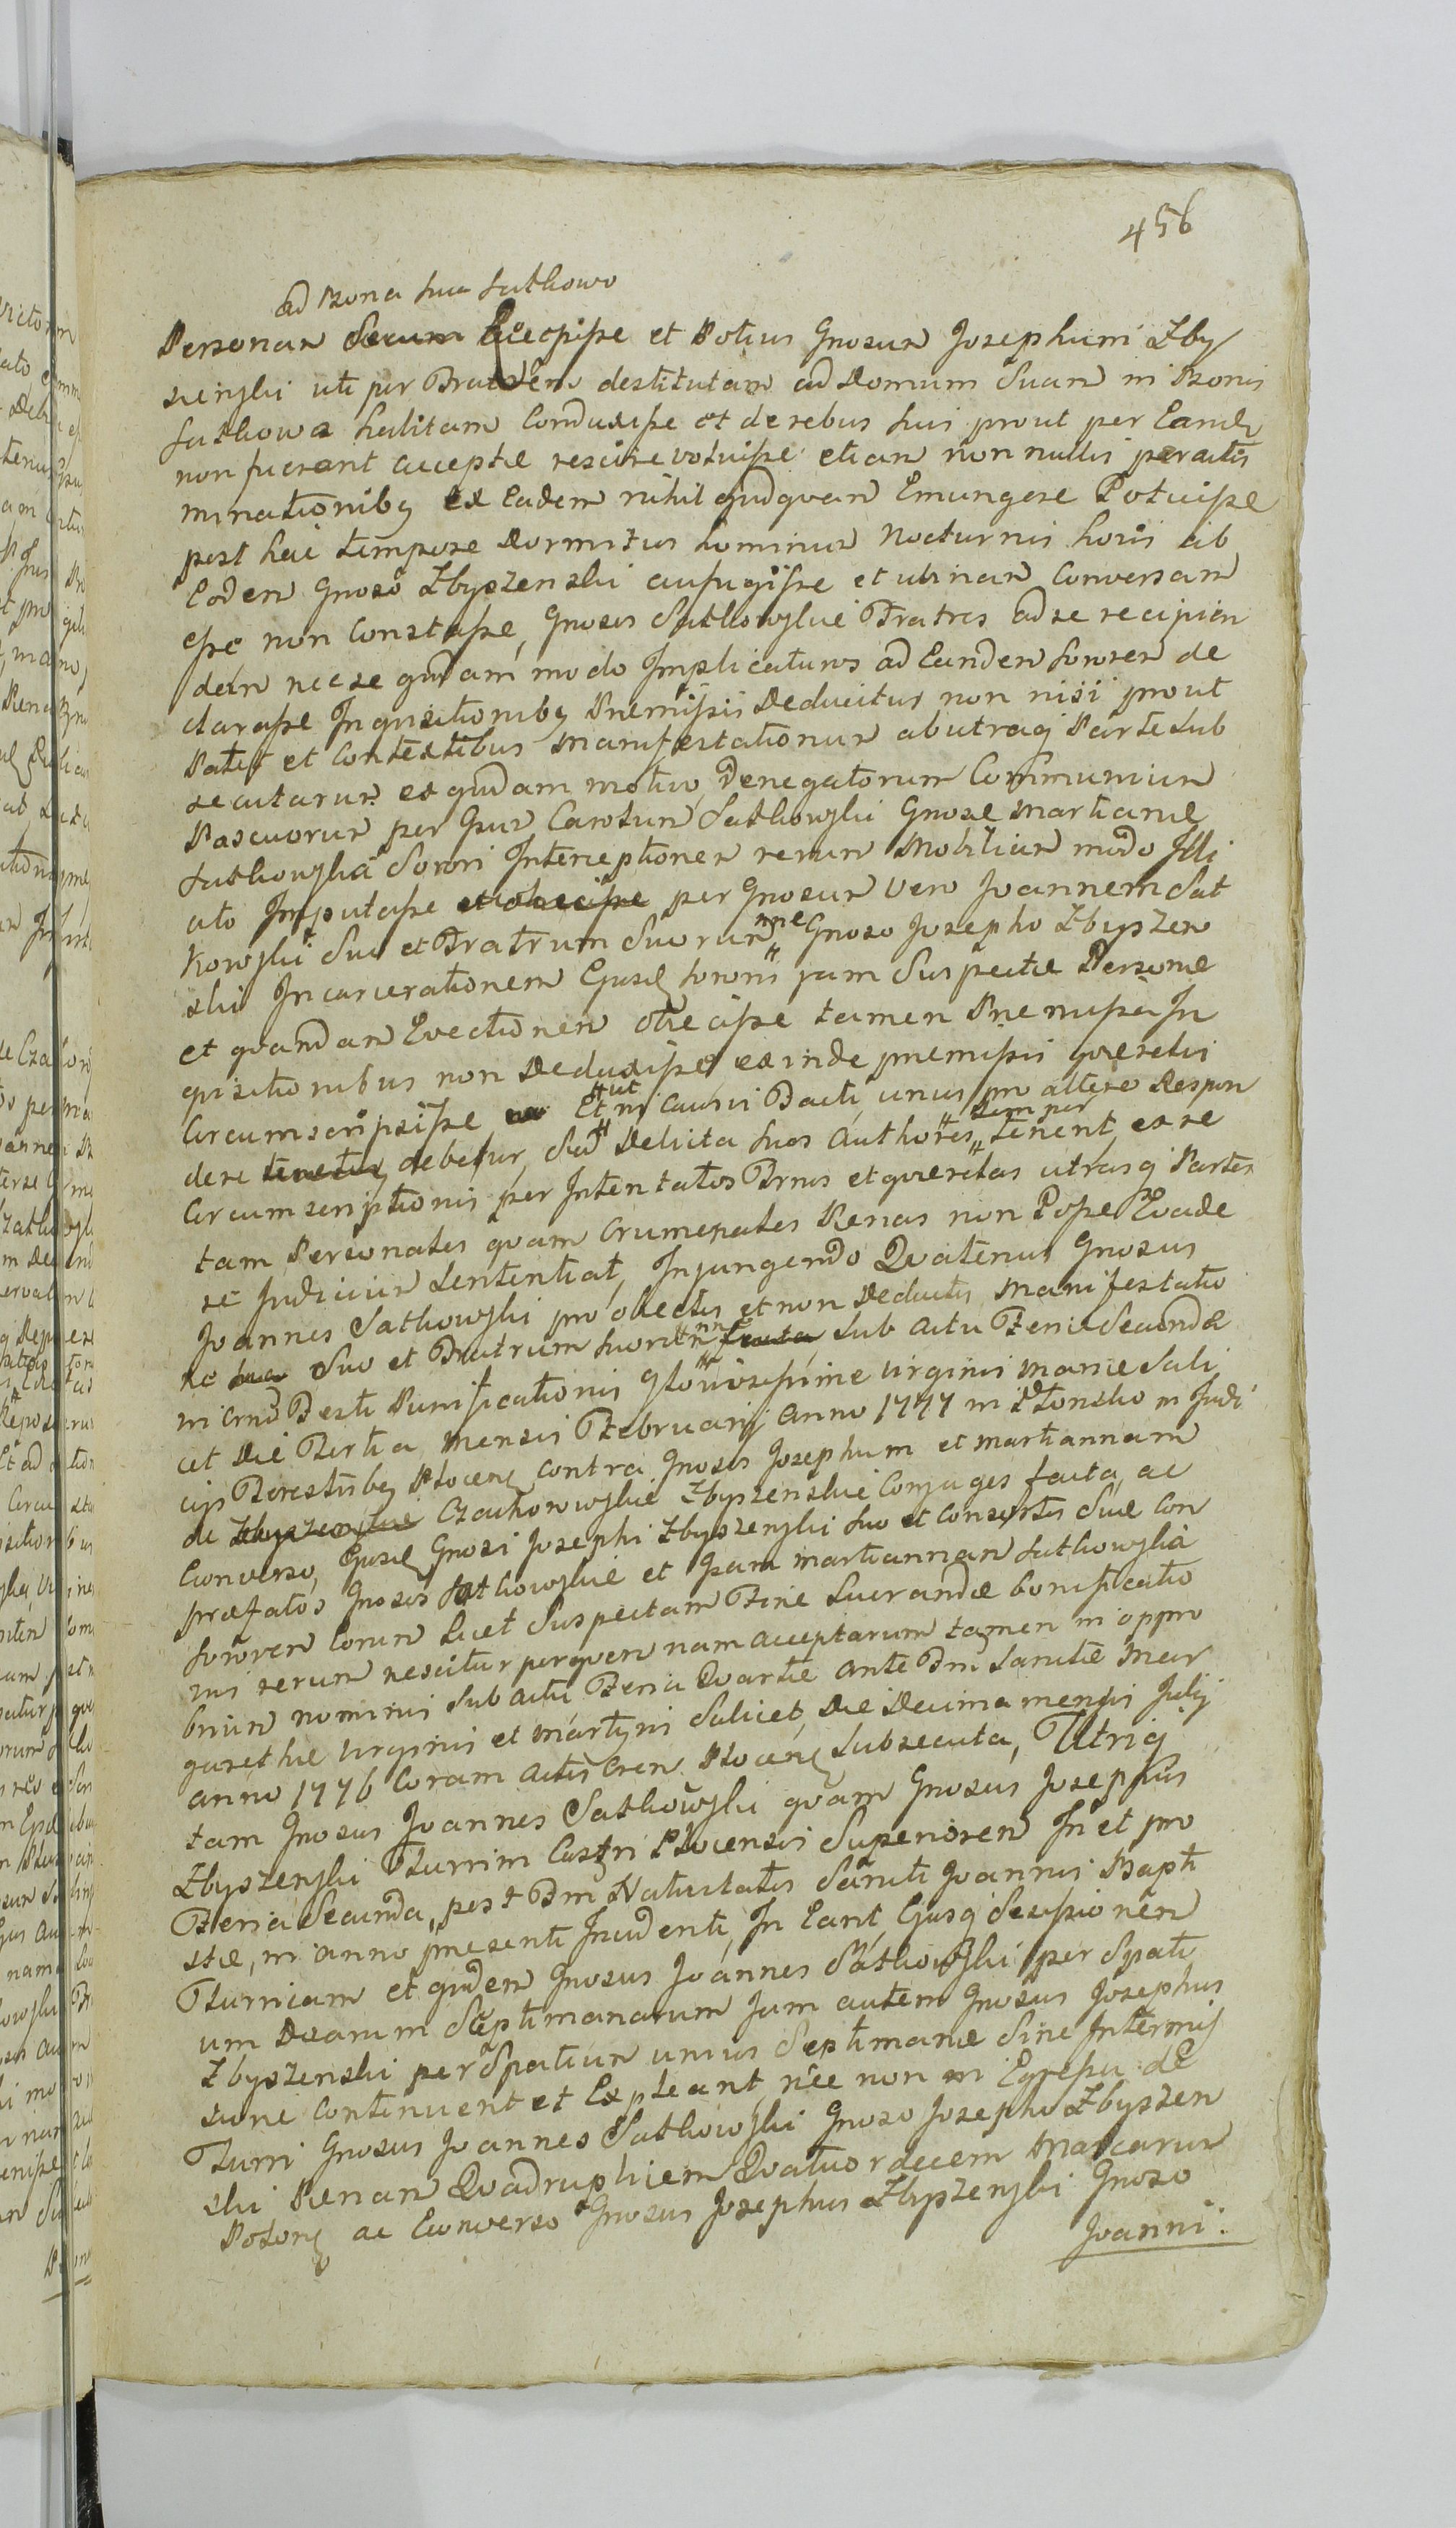 456
ad Bona sua Sutkowo
Personam Secum Recepisse et Potius Gnosum Josephum Zby
szenski uti per Fratrem destitutam ad Domum Suam in Bonis
Sutkowo habitam Conduxisse et de rebus suis prout per Eand
non fuerant acceptæ rescire voluisse etiam non nullis peractis
minationibq ex Eadem nihil quidquam Emungere Potuisse
post hac tempore Dormitus hominum Nocturnis horis ab
Eodem Gnoso Zbyszenski aufugisse et ubinam Conversam
esse non Constasse, Gnosos Sutkowskie Fratres ad se recipien
dam nec se quidam modo Implicaturos ad Eandem Sororem de
clarasse Inquisitionibq Premissis Deducitur non nisi prout
Patet et Contextibus Manifestationum ab utraq Parte Sub
secutarum ex quidam motivo Denegatorum Communium
Pascuorum per Gsum Carolum Sutkowski Gnose Martianne
Sutkowska Sorori Interceptionem rerum Mobilium modo Illi
ato Imputasse et obiecisse per Gnosum vero Joannem Sut
kowski Suo et Fratrum Suorum nne Gnoso Josepho Zbyszen
ski Incarcerationem Ejusd Sororis jam Suspectæ Personæ
et quandam Evectionem obiecisse tamen Premissa In
quisitionibus non Deduxisse, exinde premissis querelis
Circumscripsisse Et ut in Causis Facti unus pro altero Respon
dere tenetur debetur, Sed Delicta suos Authores semper tenent, ex re
Circumscriptionis per Intentatos Prnos et querelas utrasq Partes
tam Personales quam Crumenales Penas non Posse Evade
re Judicium Sententiat, Injungendo Quatenus Gnosus
Joannes Sutkowski pro obiectis et non Deductis Manifestatio
ne sua Suo et Fratrum suorum nne facta, sub Actu Feria Secunda
in Crnd Festi Purificationis Gloriosissime Virginis Mariæ Scili
cet Die Tertia Mensis Februarij Anno 1777 in Płonsko in Judi
cijs Terestribq Plocens contra Gnosos Josephum et Martiannam
de Zbyszenskie Czachorowskie Zbyszenskie Conjuges facta, ac
Econverso, Ejusd Gnosi Josephi Zbyszenski suo et Consortis Suæ Con
præfatos Gnosos Sutkowskie et Gsam Martiannam Sutkowska
Sororem Eorum Licet Suspectam Fine Lucrandæ bonificatio
nis rerum nescitur per quem nam acceptarum tamen in oppro
brium nominis Sub Actu Feria Quartæ Ante Fm Sanctæ Mar
garethæ Virginis et Martyris Scilicet, Die Decima mensis Julij
Anno 1776 Coram Actis Cren Plocens Subsecuta, Utriq
tam Gnosus Joannes Sutkowski quam Gnosus Josephus
Zbyszenski Turrim Castri Plocensis Superiorem In et pro
Feria Secunda, post Fm Nativitatis Sancti Joannis Bapti
stæ, in anno presenti Incidenti, In Eant, Ejusq Sessionem
Turriam et quidem Gnosus Joannes Sutkowski per Spati
um Duarum Septimanarum Jam autem Gnosus Josephus
Zbyszenski per Spatium unius Septimanæ Sine Intermis
sione Continuent et Expleant, nec non in Egressu de
Turri Gnosus Joannes Sutkowski Gnoso Josepho Zbyszen
ski Penam Quadruplicem Quatuordecem Marcarum
Polon ac Econverso Gnosus Josephus Zbyszenski Gnoso
Joanni: